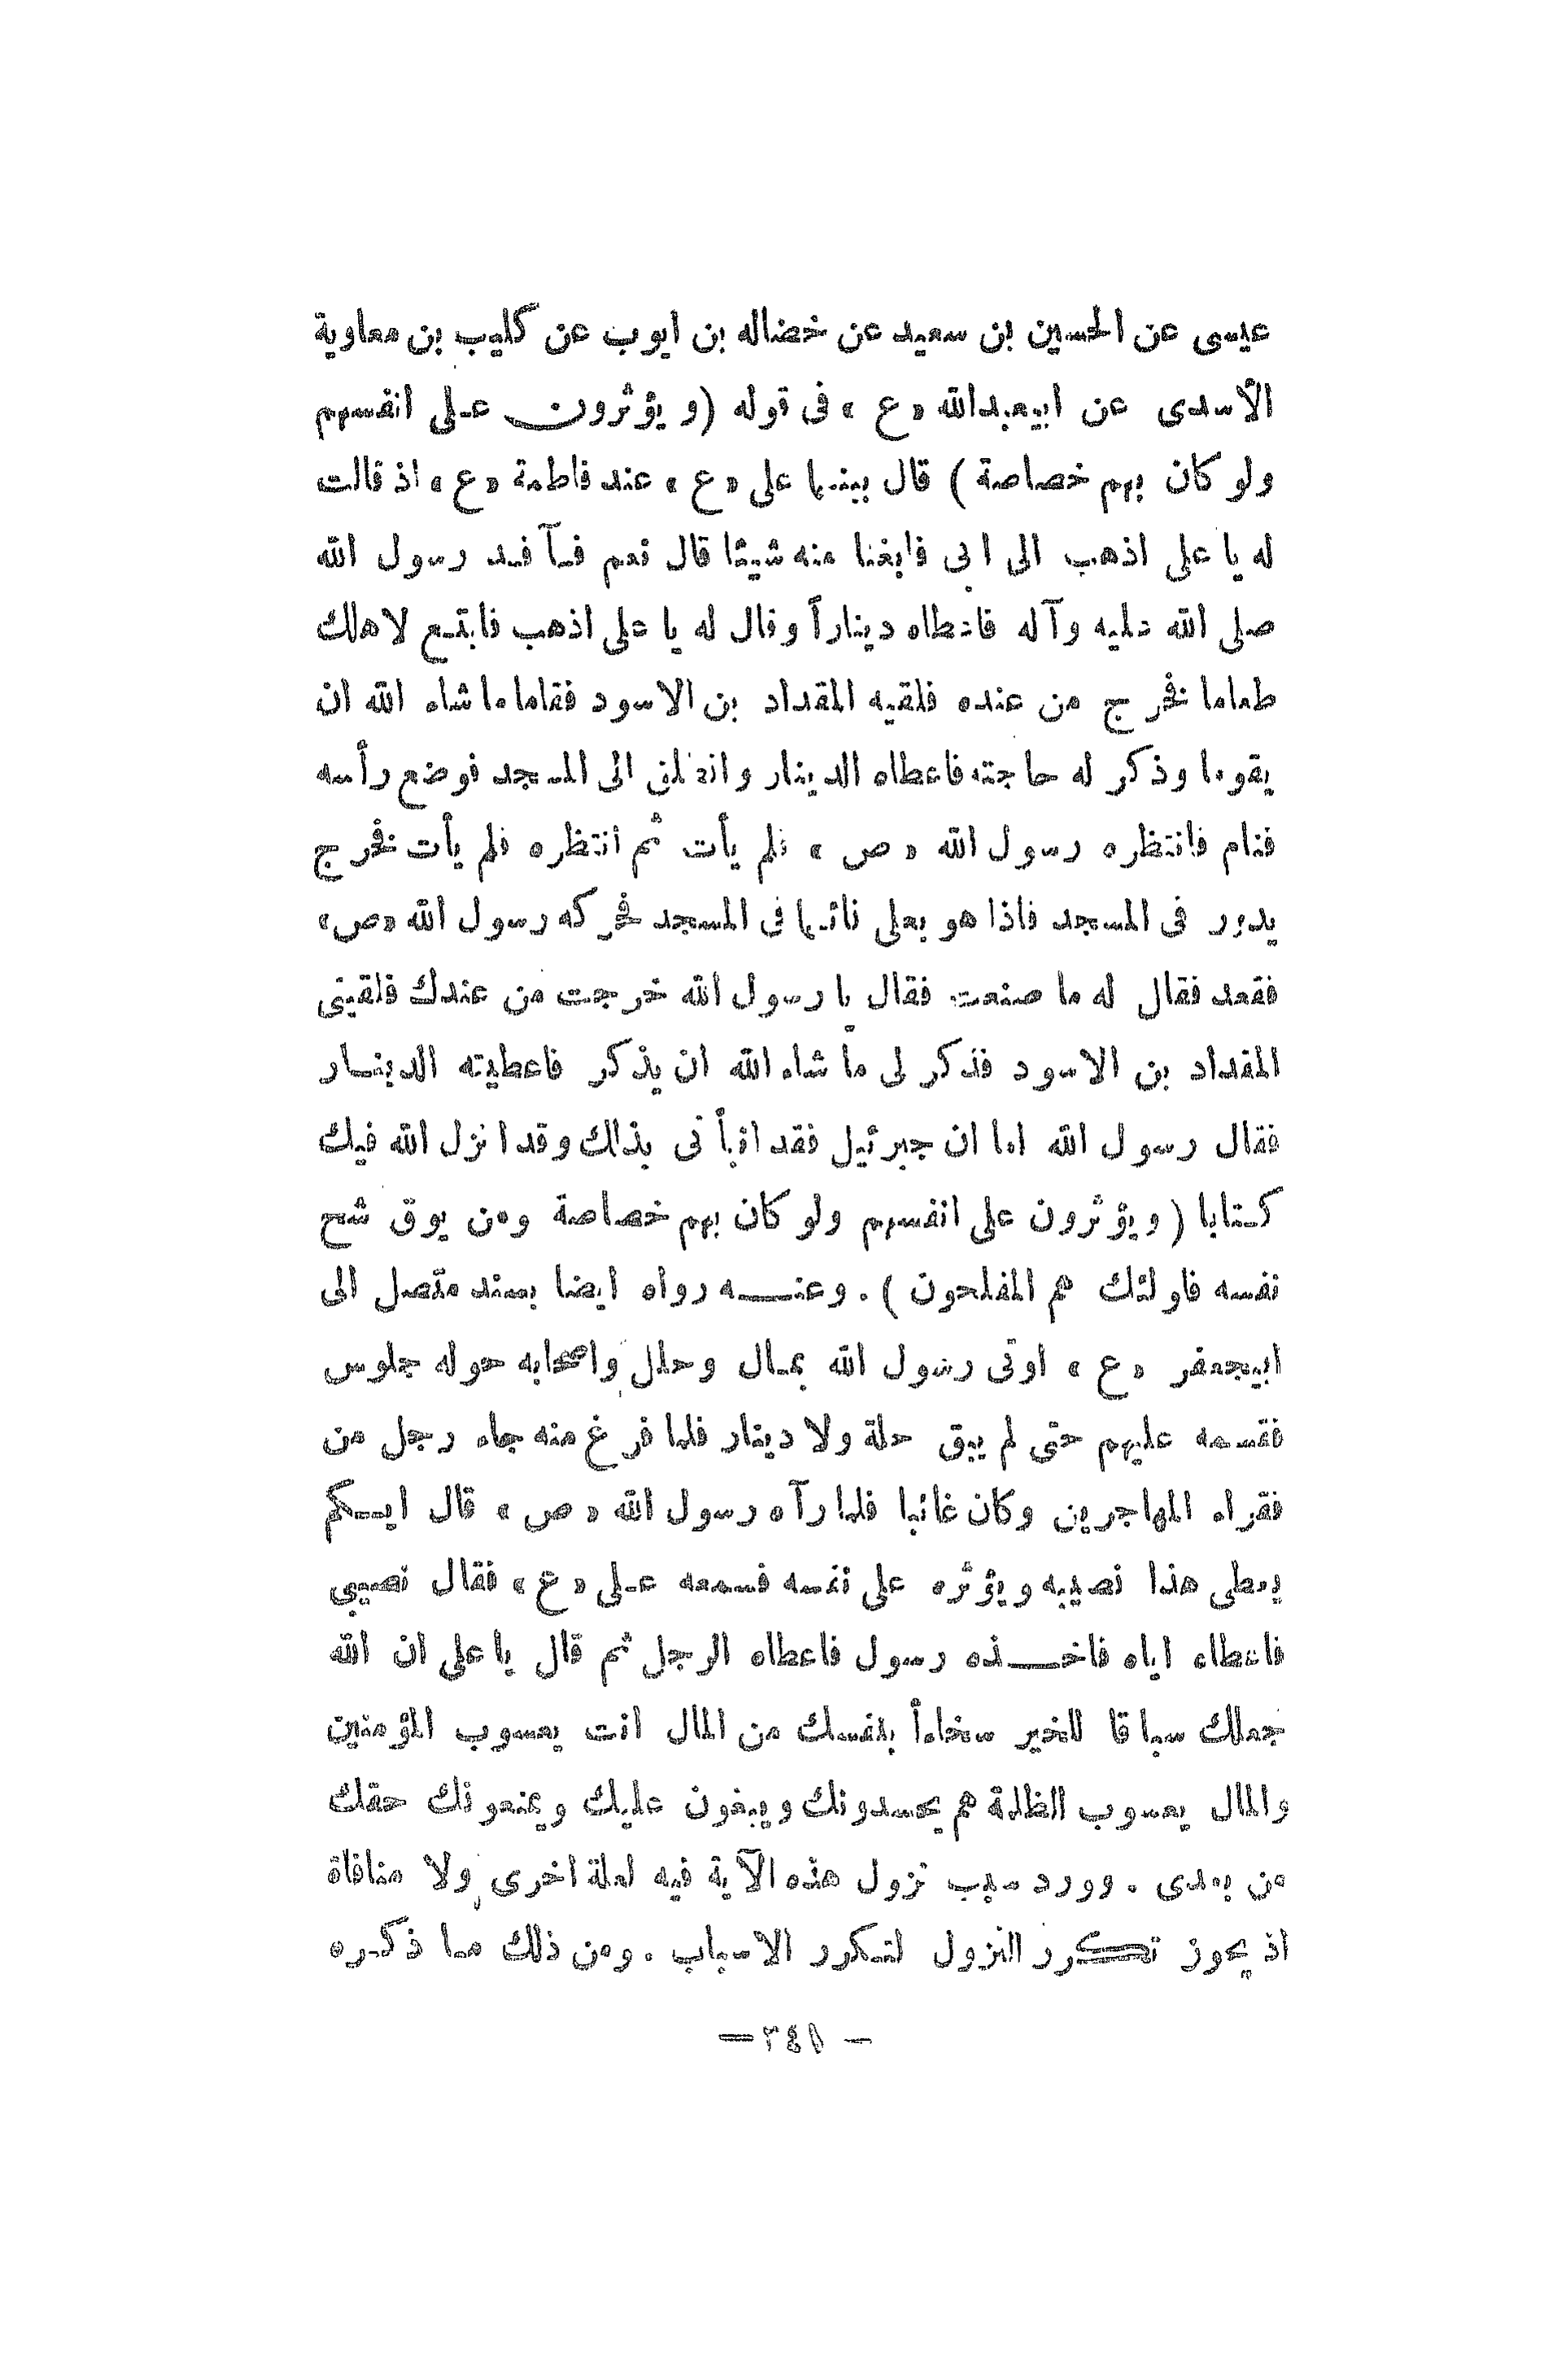 عيسى عن الحسين بن سعيد عن خضاله بن ايوب عن كليب بن معاوية
الأسدى عن ابيعبدالله «ع» فى قوله (و يؤثرون عـلى انفسهم
ولو كان بهم خصاصة) قال بينـما على «ع» عند فاطمة «ع» اذ قالت
له يا على اذهب الى ابى فابغنا منه شيئا قال نعم فـآ فـد رسول الله
صلى الله عليه وآله فاعطاه ديناراً وقال له يا على اذهب فابتـع لاهلك
طعاما فخرج من عنده فلقيه المقداد بن الاسود فقاما ما شاء الله ان
يقوما وذكر له حاجته فاعطاه الدينار وانطلق الى المسجد فوضع رأسه
فنام فانتظره رسول الله «ص» فلم يأت ثم انتظره فلم يأت فخرج
يدور فى المسجد فاذا هو بعلى نائـما فى المسجد فحركه رسول الله «ص»
فقعد فقال له ما صنعت فقال يا رسول الله خرجت من عندك فلقينى
المقداد بن الاسود فذكر لى ما شاء الله ان يذكر فاعطيته الدينـار
فقال رسول الله اما ان جبرئيل فقد انبأ نى بذلك وقد انزل الله فيك
كـتابا (ويؤثرون على انفسهم ولو كان بهم خصاصة ومن يوق شح
نفسه فاولئك هم المفلحون). وعنـــه رواه ايضا بسند متصل الى
ابيجعفر «ع» اوتى رسول الله بمـال وحلل واصحابه حوله جلوس
فقسمه عليهم حتى لم يبق حلة ولا دينار فلما فرغ منه جاء رجل من
فقراء المهاجرين وكان غائبا فلما رآه رسول الله «ص» قال ايـكم
يعطى هذا نصيبه ويؤثره على نفسه فسمعه عـلى «ع» فقال نصيبى
فاعطاء اياه فاخــذه رسول فاعطاه الرجل ثم قال يا على ان الله
جعلك سباقا للخير سخاءاً بنفسك من المال انت يعسوب المؤمنين
والمال يعسوب الظلمة هم يحسدونك ويبغون عليك ويمنعونك حقك
من بعدى. وورد سبب نزول هذه الآية فيه لعلة اخرى ولا منافاة
اذ يجوز تـكرر النزول لتـكرر الاسباب. ومن ذلك مـا ذكـره
— ٢٤١ —